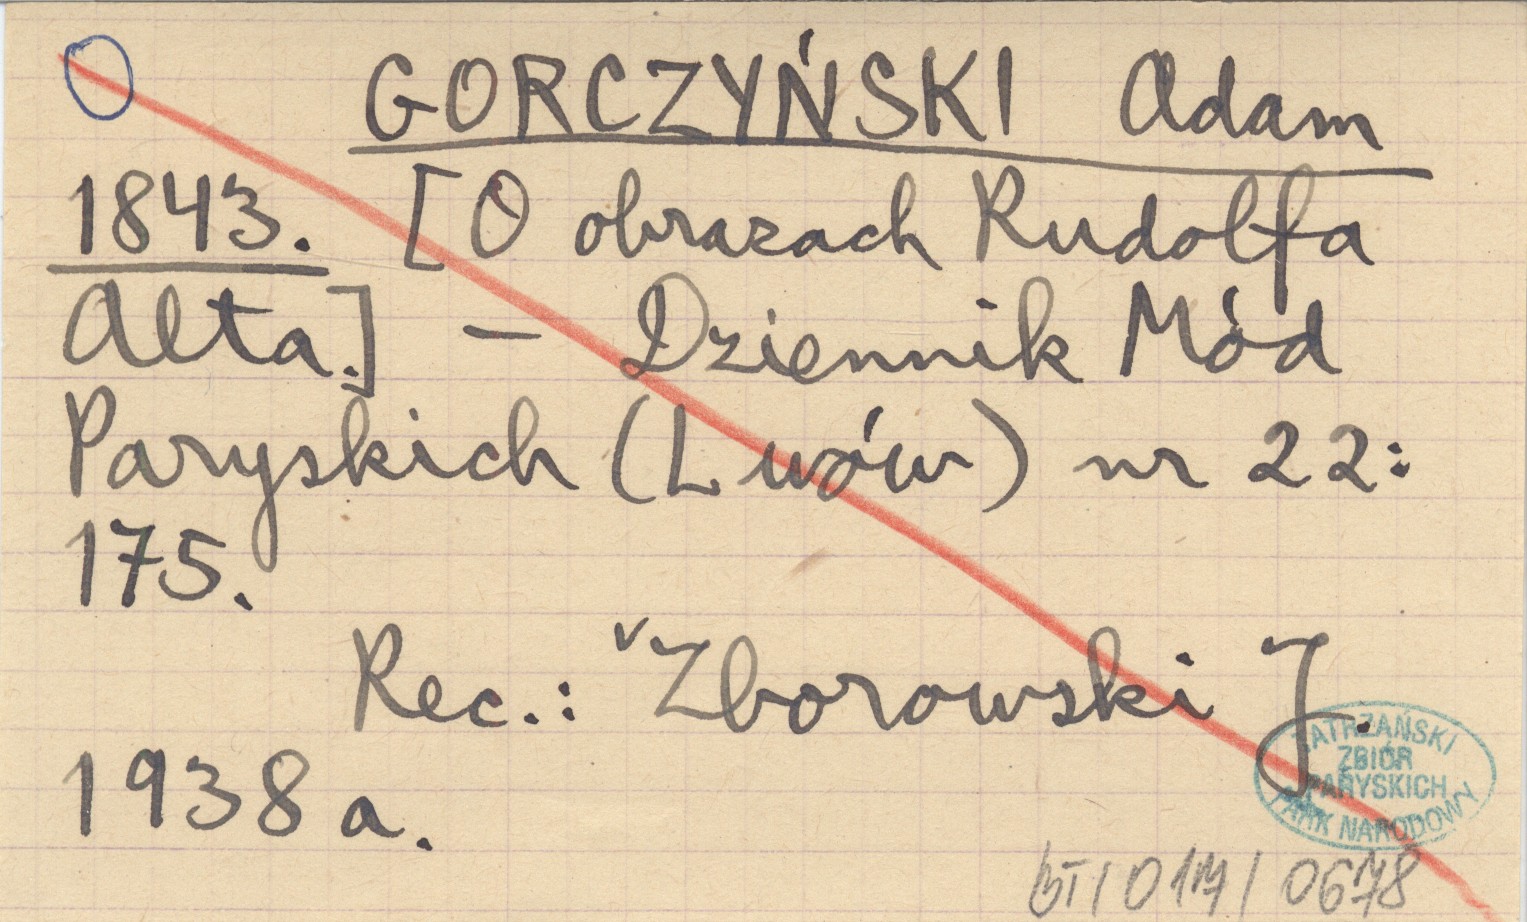 GORCZYŃSKI Adam
1843. [O obrazach Rudolfa
Alta.] — Dziennik Mód
Paryskich (Lwów) nr 22:
175.
Rec.: Zborowski J.
1938 a.
TATRZAŃSKI
ZBIÓR
PARYSKICH
PARK NARODOWY
BT / 017 / 0678